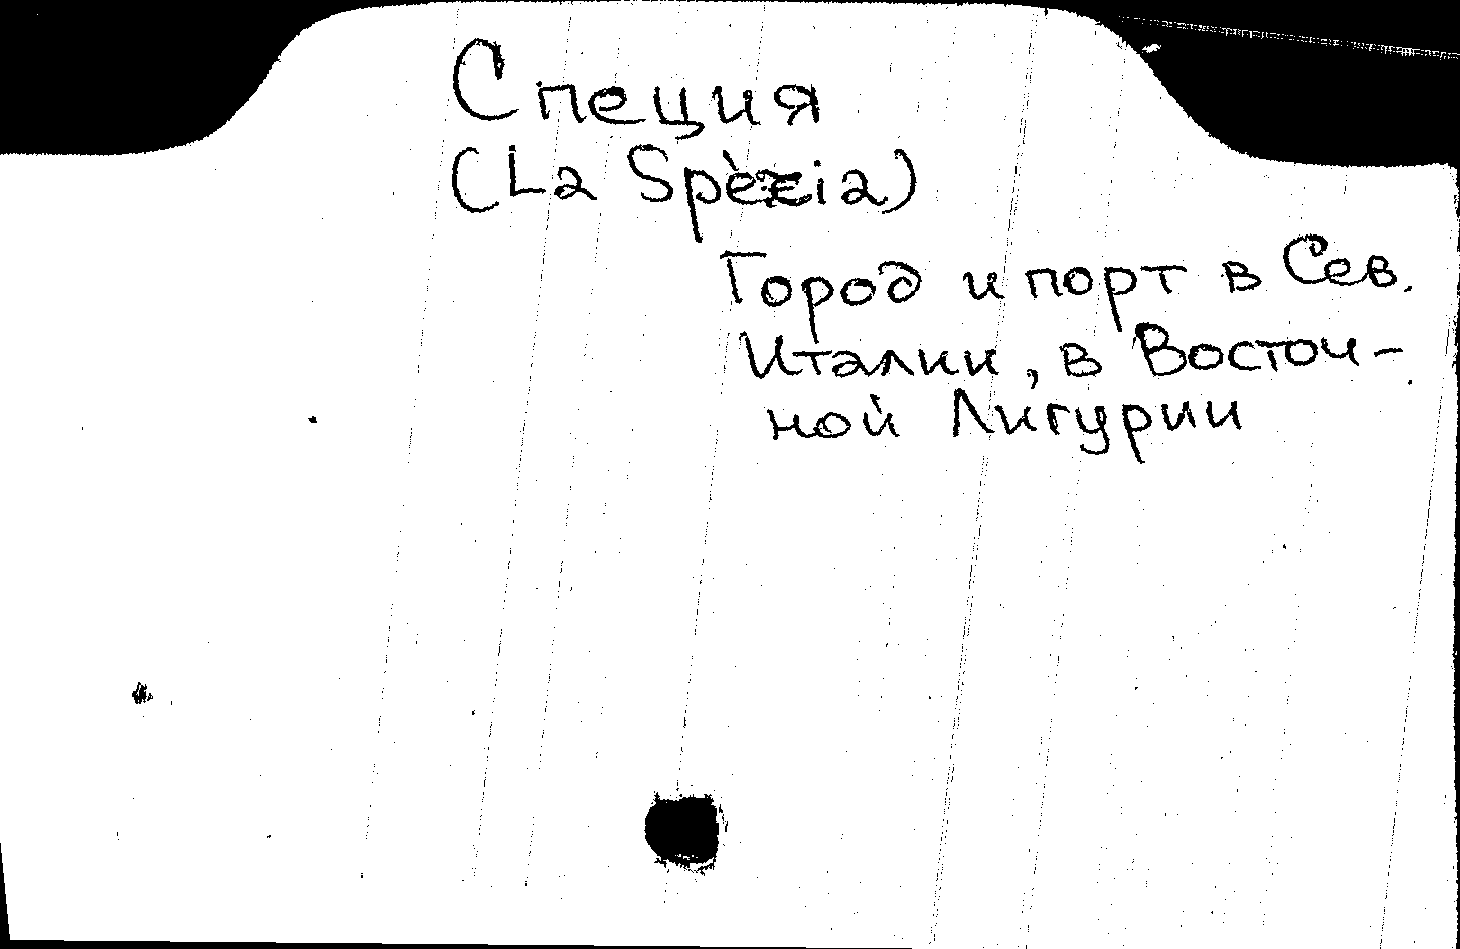 Специя
(La Spèzia)
Город и порт в Сев.
Италии, в Восточ-
ной Лигурии